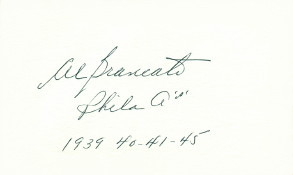 Al Brancato
Phila A's
1939 40-41-45